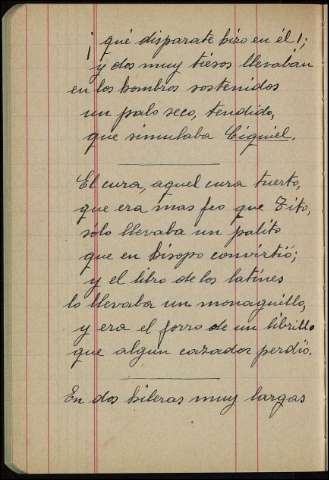 ¡ qué disparate hizo en él!;
y dos muy tiesos llevaban
en los hombros sostenidos
un palo seco, tendido,
que simulaba
El cura, aquel cura tuerto,
que era mas feo que Tito,
solo llevaba un palito
que en hisopo convirtió;
y el libro de los latines
lo llevaba un monaguillo,
y era el forro de un librillo
que algun cazador perdió.
En dos hileras muy largas